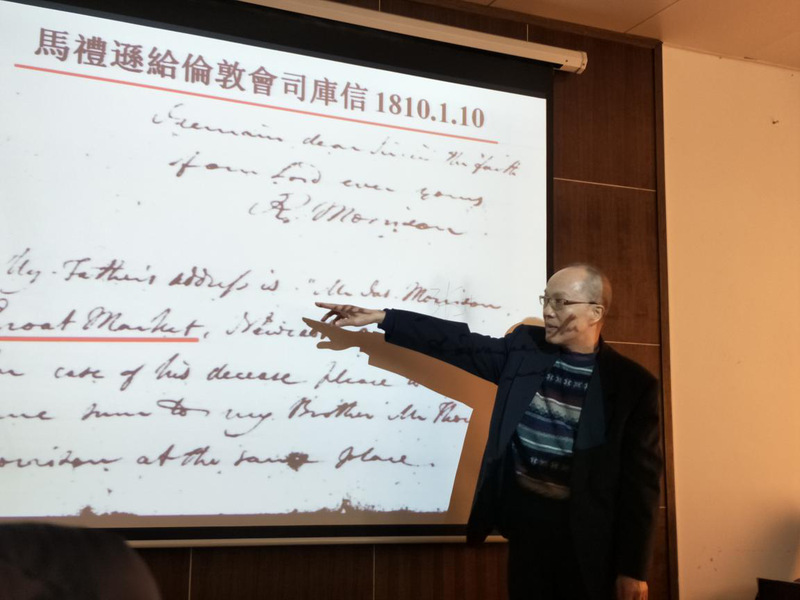 馬禮遜給倫敦會司庫信 1810.1.10
I remain dear Sir in the faith
of our Lord ever yours
R. Morrison.
My Father's address is. "Mr Jas. Morrison,
Groat Market,
case of his decease please
sum to my Brother Mr Tho
orrison at the same place.